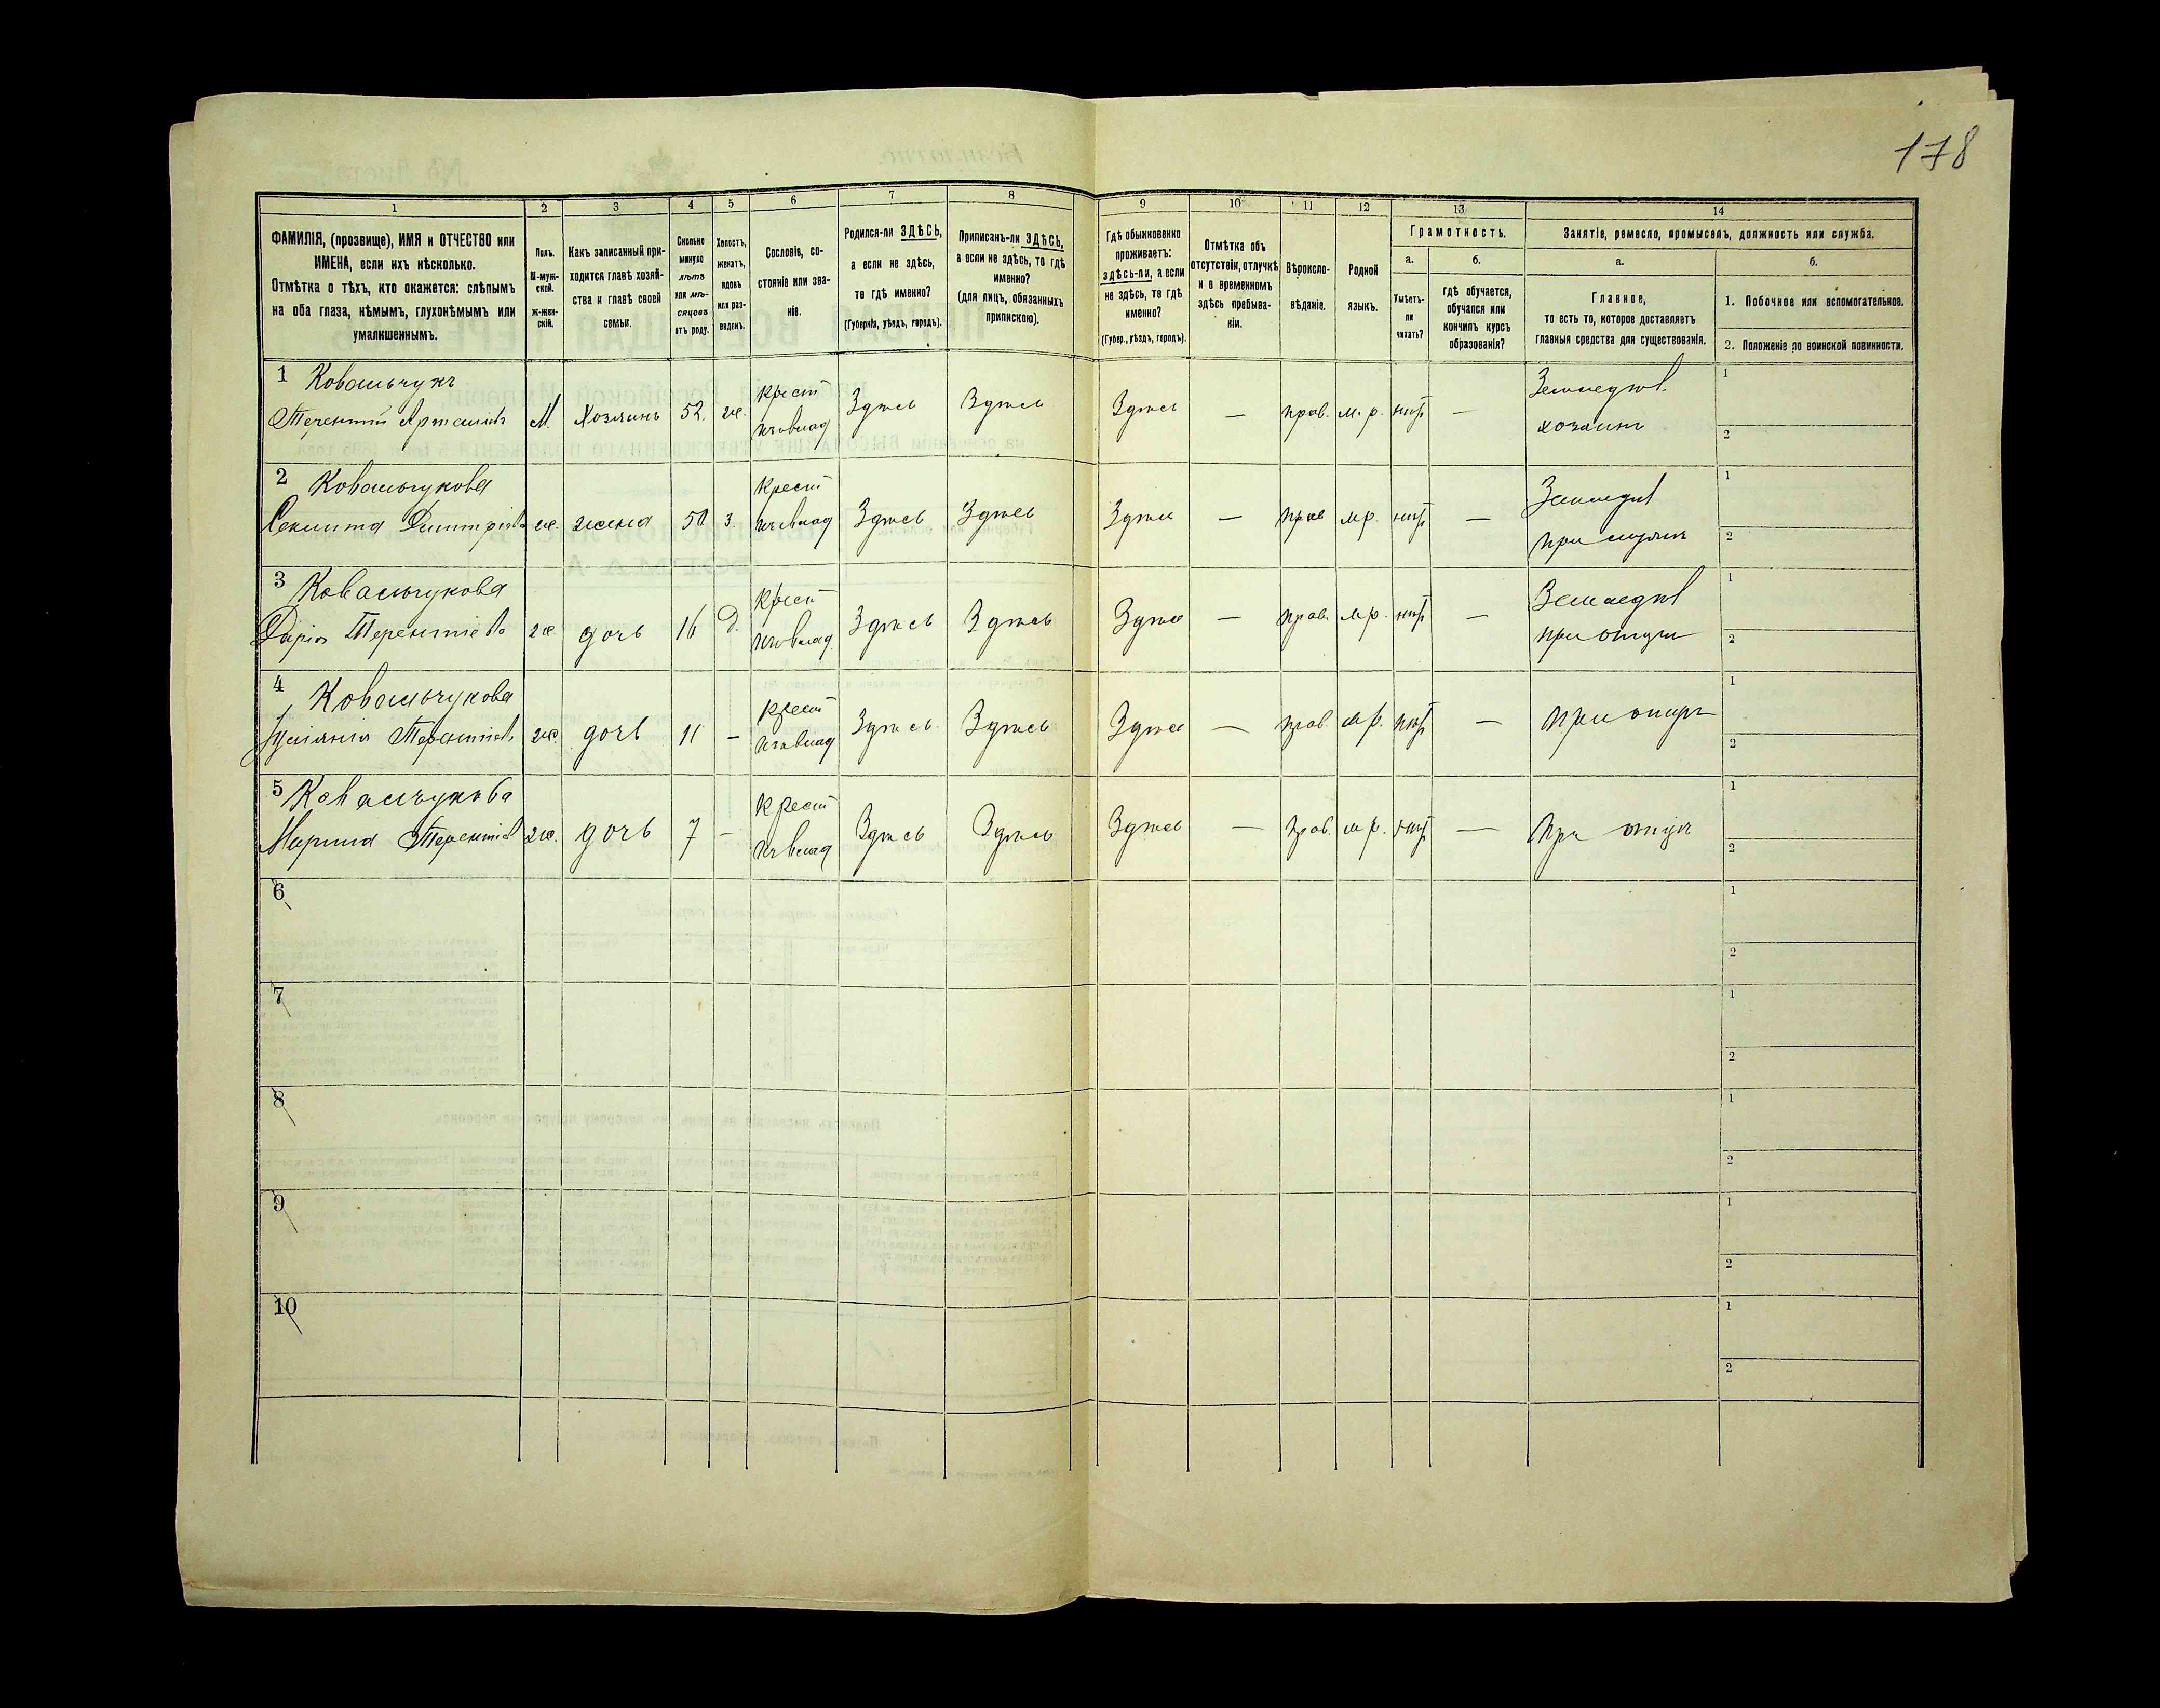 178
1
2
3
4
5
6
7
8
9
10
11
12
13
14
ФАМИЛІЯ, (прозвище), ИМЯ и ОТЧЕСТВО или
ИМЕНА, если ихъ нѣсколько.
Отмѣтка о тѣхъ, кто окажется: слѣпымъ
на оба глаза, нѣмымъ, глухонѣмымъ или
умалишеннымъ.
Полъ.
М-муж-
ской.
Ж-жен-
скій.
Какъ записанный при-
ходится главѣ хозяй-
ства и главѣ своей
семьи.
Сколько
минуло
лѣтъ
или мѣ-
сяцевъ
отъ роду.
Холостъ,
женатъ,
вдовъ
или раз-
веденъ.
Сословіе, со-
стояніе или зва-
ніе.
Родился-ли ЗДѢСЬ,
а если не здѣсь,
то гдѣ именно?
(Губернія, уѣздъ, городъ).
Приписанъ-ли ЗДѢСЬ,
а если не здѣсь, то гдѣ
именно?
(для лицъ, обязанныхъ
припискою).
Гдѣ обыкновенно
проживаетъ:
здѣсь-ли, а если
не здѣсь, то гдѣ
именно?
(Губер., уѣздъ, городъ).
Отмѣтка объ
отсутствіи, отлучкѣ
и о временномъ
здѣсь пребыва-
ніи.
Вѣроиспо-
вѣданіе.
Родной
языкъ.
Грамотность.
а.
Умѣетъ-
ли
читать?
б.
гдѣ обучается,
обучался или
кончилъ курсъ
образованія?
Занятіе, ремесло, промыселъ, должность или служба.
а.
Главное,
то есть то, которое доставляетъ
главныя средства для существованія.
б.
1. Побочное или вспомогательное.
2. Положеніе по воинской повинности.
1 Ковальчукъ
Терентій М. Хозяинъ 52. ж. Крест Здѣсь Здѣсь Здѣсь — прав. м. р. нѣт — Землед.
хозяинъ
1
2
2 Ковальчукова
Дмитріева ж. жена 50 з. Крест Здѣсь Здѣсь Здѣсь — прав м.р. нѣт — Землед
при мужѣ
1
2
3 Ковальчукова
Дарія Терентіева ж. дочь 16 д. Крест Здѣсь Здѣсь Здѣсь — прав. м.р. нѣт — Землед
при отцѣ
1
2
4 Ковальчукова
Терентіев. ж. дочь 11 — Крест Здѣсь Здѣсь Здѣсь — прав. м.р. нѣт — при отцѣ
1
2
5 Ковальчукова
Марина Терентіев ж. дочь 7 — Крест Здѣсь Здѣсь Здѣсь — прав. м.р. нѣт — При отцѣ
1
2
6
1
2
7
1
2
8
1
2
9
1
2
10
1
2